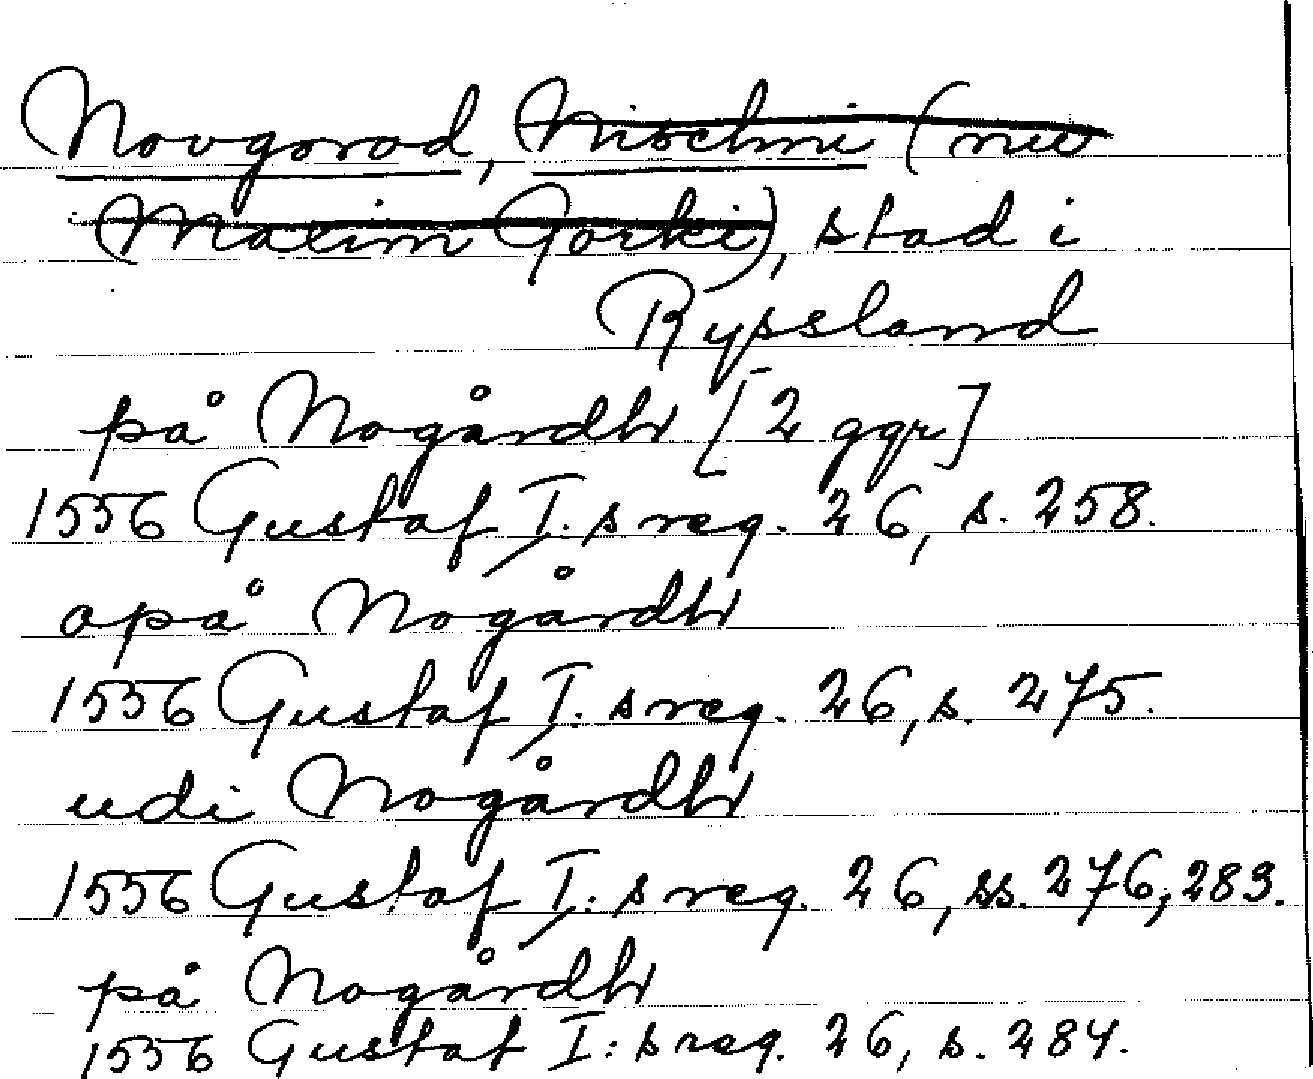 Novgorod, Nischni (nu
Maxim Gorki), stad i
Ryssland
på Nogårdh [2 ggr]
1556 Gustaf I:s reg. 26, s. 258.
opå Nogårdh
1556 Gustaf I:s reg. 26, s. 275.
udi Nogårdh
1556 Gustaf I:s reg. 26, ss. 276, 283.
på Nogårdh
1556 Gustaf I:s reg. 26, s. 284.